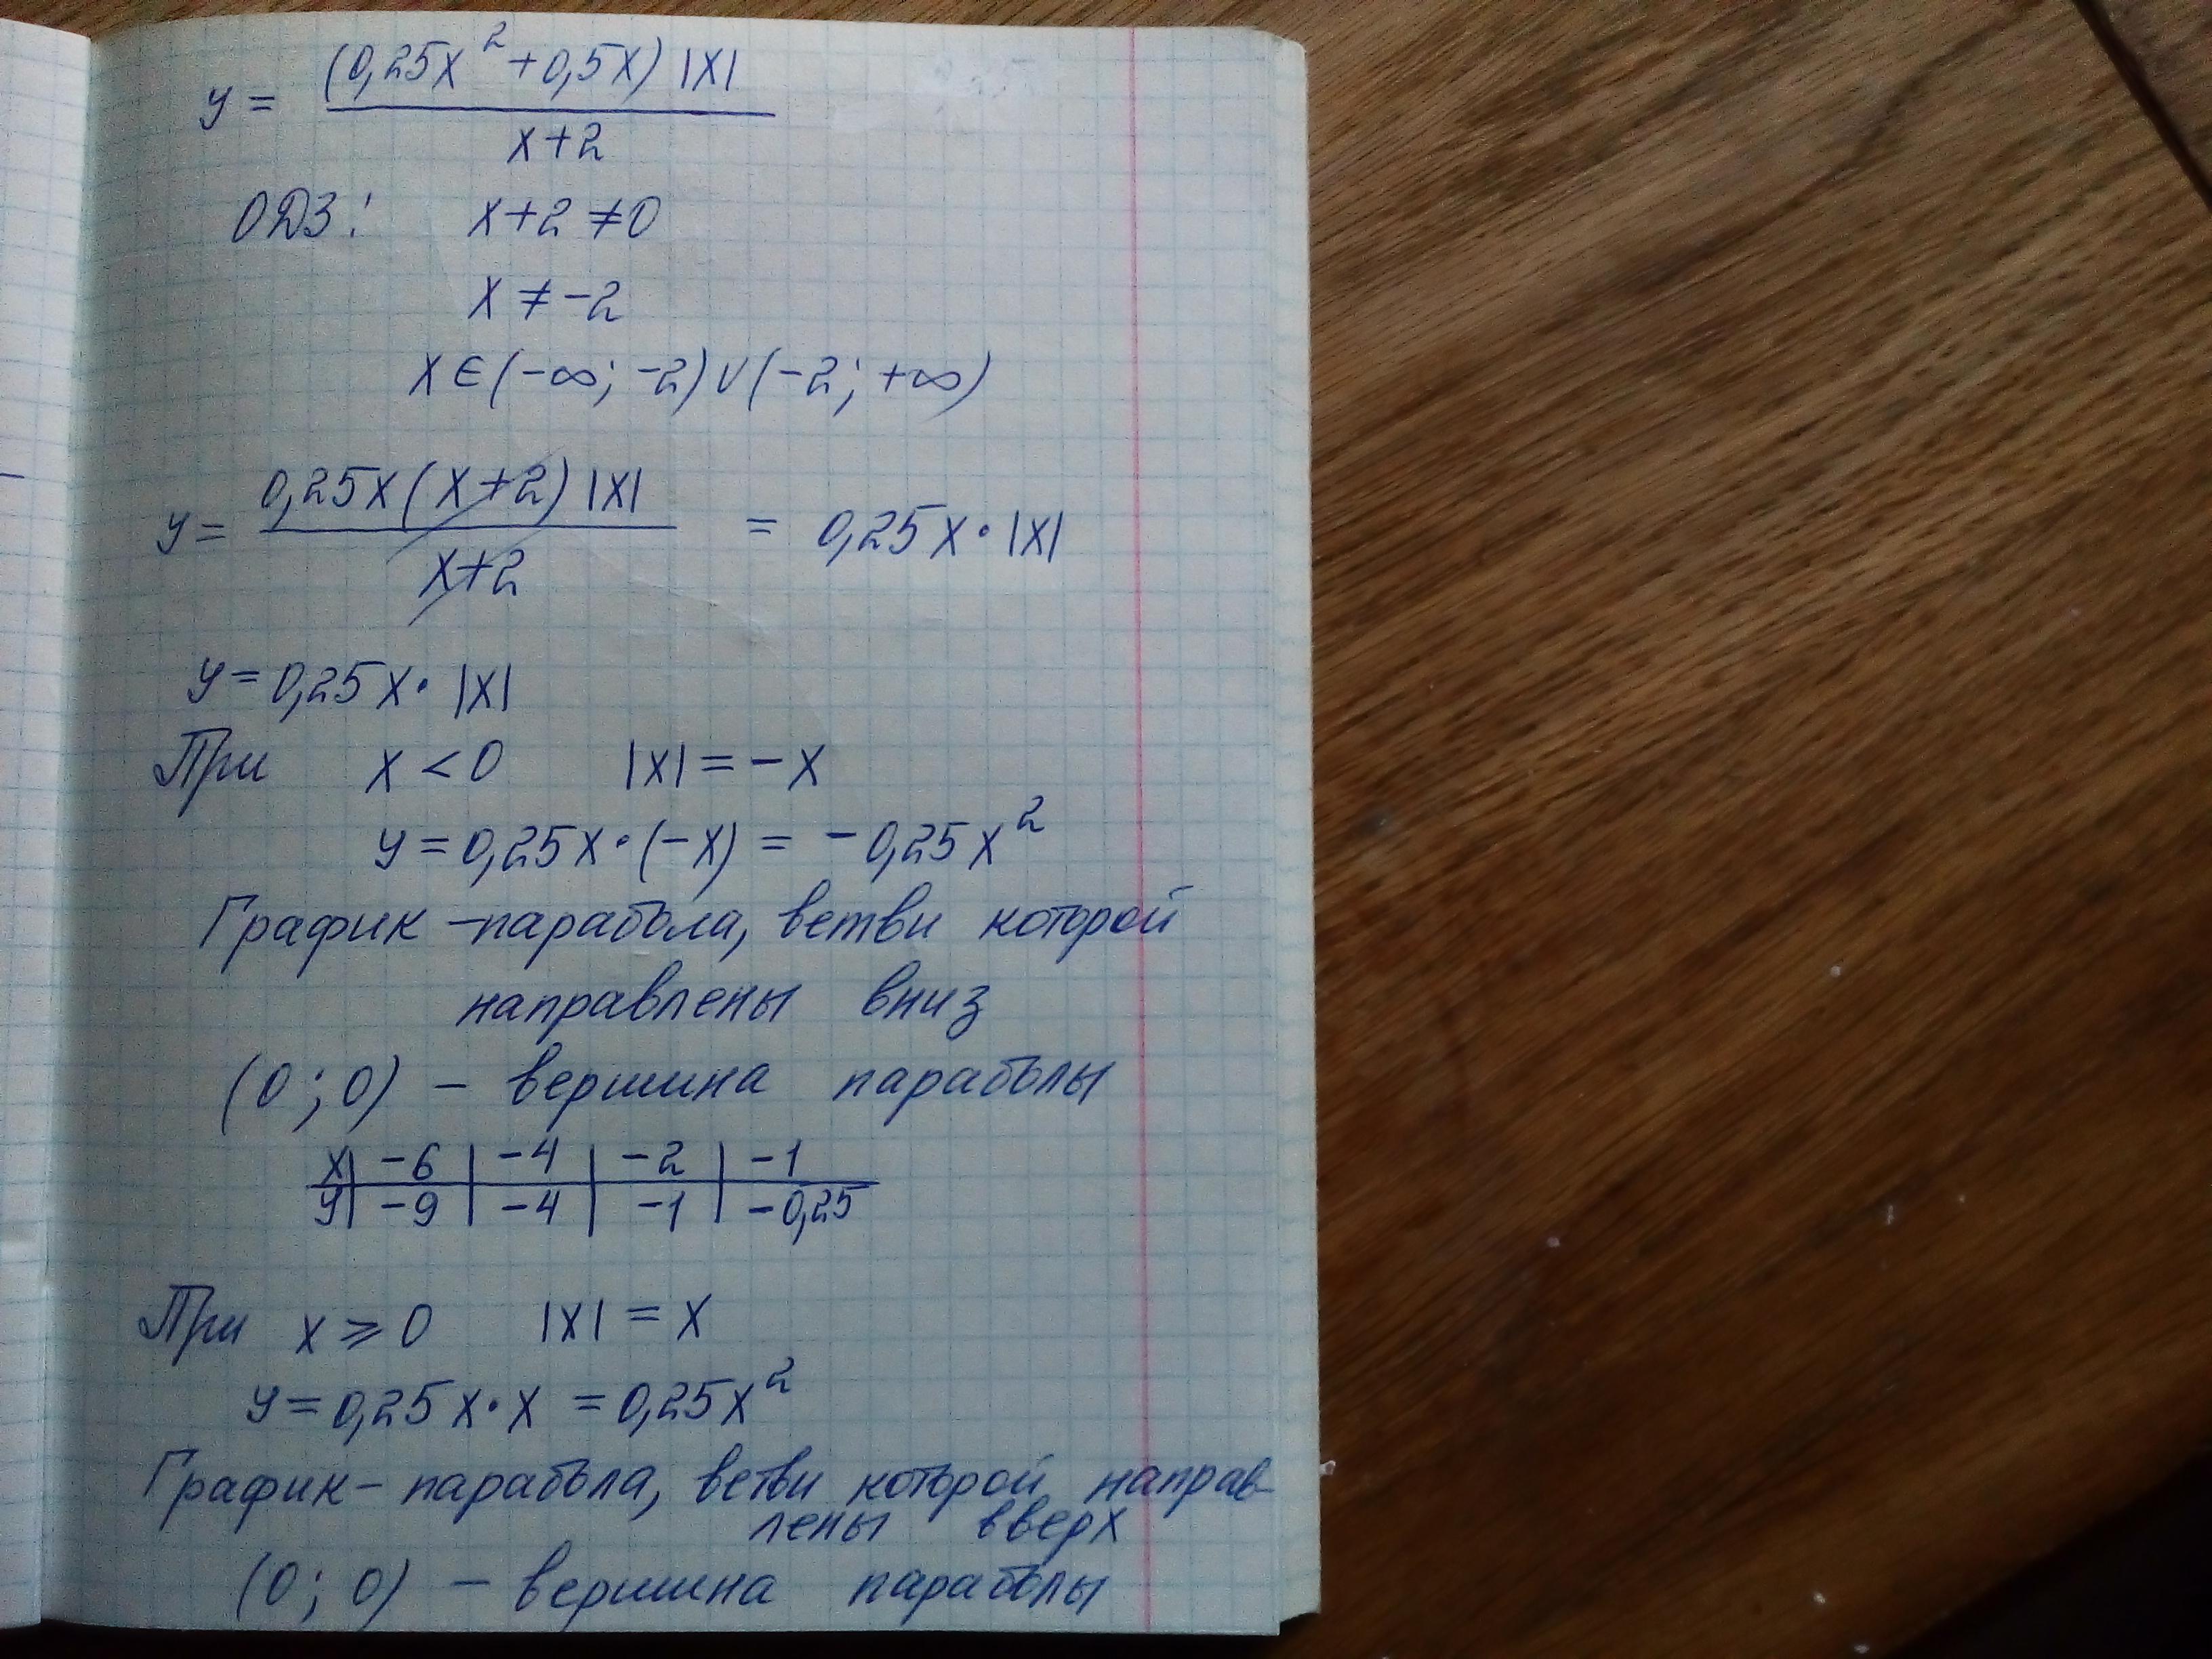 y = (0,25x² + 0,5x) |x| / x+2
ОДЗ: x+2 ≠ 0
x ≠ -2
x ∈ (-∞; -2) ∪ (-2; +∞)
y = 0,25x (x+2) |x| / x+2 = 0,25x · |x|
y = 0,25x · |x|
При x < 0 |x| = -x
y = 0,25x · (-x) = -0,25x²
График - парабола, ветви которой
направлены вниз
(0; 0) - вершина параболы
x | -6 | -4 | -2 | -1
y | -9 | -4 | -1 | -0,25
При x ⩾ 0 |x| = x
y = 0,25x · x = 0,25x²
График - парабола, ветви которой направ-
лены вверх
(0; 0) - вершина параболы